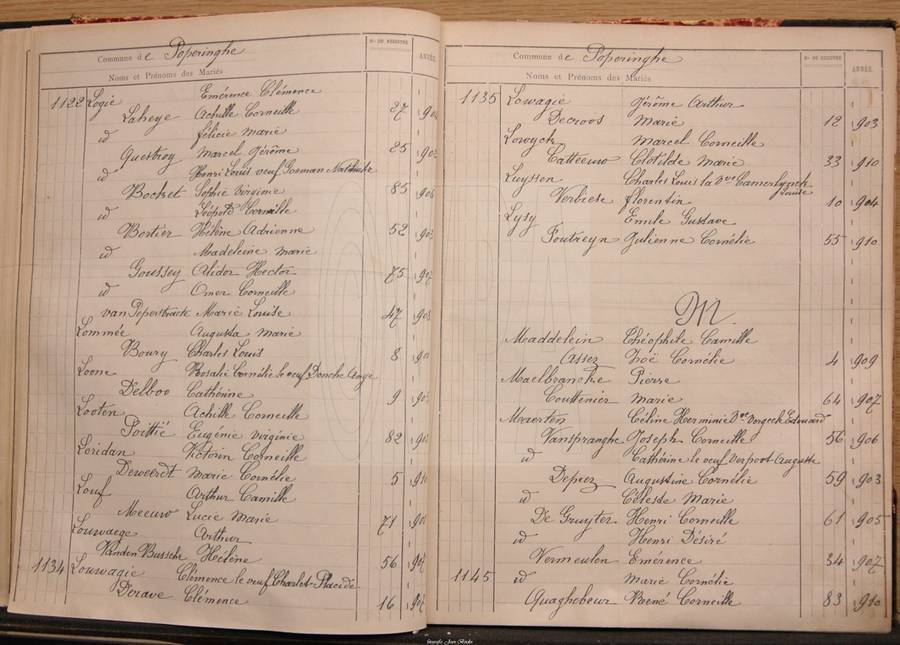 Commune de Poperinghe
Noms et Prénoms des Mariés
Nos DU REGISTRE
ANNÉE
1122 Logie Emérence Clémence
Laheye Achille Corneille 27
id félicie Marie
Questroy Marcel Jérôme 25
id Henri Louis veuf
Bochet Sophie Virginie 85
id Léopold Corneille
Bostier Hélène Adrienne 52
id Madeleine Marie
Goussey Alidor Hector 75
id Omer Corneille
van Marie Louise 47
Lommée Augusta Marie
Boury Charles Louis 8
Loone Rosalie Cornélie
Delboo Cathérine 9
Looten Achille Corneille
Poittié Eugénie Virginie 82
Loridan Victorin Corneille
Deweerdt Marie Cornélie 5
Louf Arthur Camille
Meeuw Lucie Marie 71
Louwaege Arthur
Vanden Bussche Hélène 56
1134 Louwagie Clémence
Derave Clémence 16
Commune de Poperinghe
Noms et Prénoms des Mariés
Nos DU REGISTRE
ANNÉE
1135 Lowagie Jérôme Arthur
Decroos Marie 12 903
Lowyck Marcel Corneille
Catteeuw Clotilde Marie 33 910
Luyssen Charles Louis
Verbiese florentin 10 904
Lysy Emile Gustave
Foutreyn Julienne Cornélie 55 910
M.
Maddelein Théophile Camille
Assez Zoë Cornélie 4 909
Maelbrancke Pierre
Couttenier Marie 64 907
Maerten Céline Herminie
Vanspranghe Joseph Corneille 56 906
id Cathérine
Depiez Augustine Cornélie 59 903
id Céleste Marie
De Gruyter Henri Corneille 61 905
id Henri Désiré
Vermeulen Emérence 34 907
1145 id Marie Cornélie
Quaghebeur René Corneille 83 910